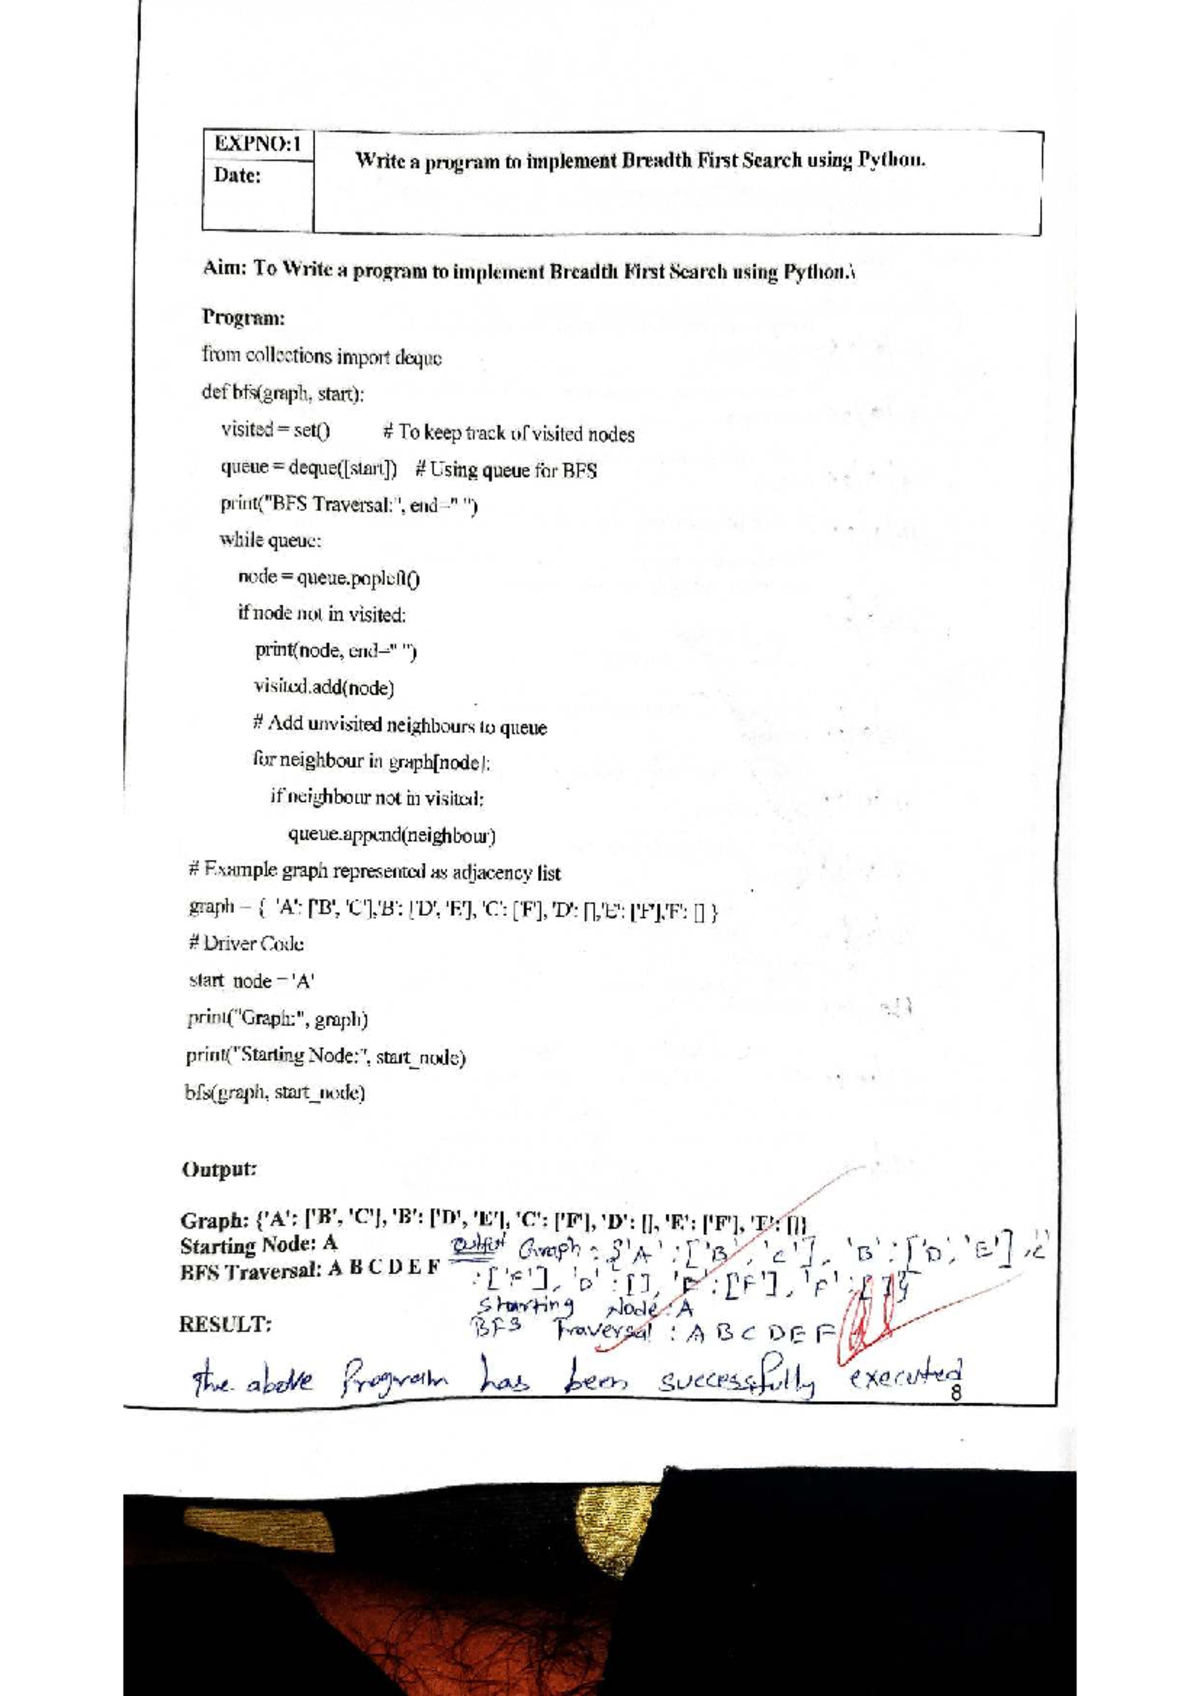 EXPNO:1
Date:
Write a program to implement Breadth First Search using Python.
Aim: To Write a program to implement Breadth First Search using Python.\
Program:
from collections import deque
def bfs(graph, start):
visited = set() # To keep track of visited nodes
queue = deque([start]) # Using queue for BFS
print("BFS Traversal:", end=" ")
while queue:
node = queue.popleft()
if node not in visited:
print(node, end=" ")
visited.add(node)
# Add unvisited neighbours to queue
for neighbour in graph[node]:
if neighbour not in visited:
queue.append(neighbour)
# Example graph represented as adjacency list
graph = { 'A': ['B', 'C'],'B': ['D', 'E'], 'C': ['F'], 'D': [],'E': ['F'],'F': [] }
# Driver Code
start node = 'A'
print("Graph:", graph)
print("Starting Node:", start_node)
bfs(graph, start_node)
Output:
Graph: {'A': ['B', 'C'], 'B': ['D', 'E'], 'C': ['F'], 'D': [], 'E': ['F'], 'F': []}
Starting Node: A
BFS Traversal: A B C D E F
Output Graph : {'A' : ['B', 'C'], 'B' : ['D', 'E'], 'C'
: ['F'], 'D' : [], 'E' : ['F'], 'F' : [ ]}
Starting Node : A
BFS Traversal : A B C D E F
RESULT:
The above Program has been successfully executed
8